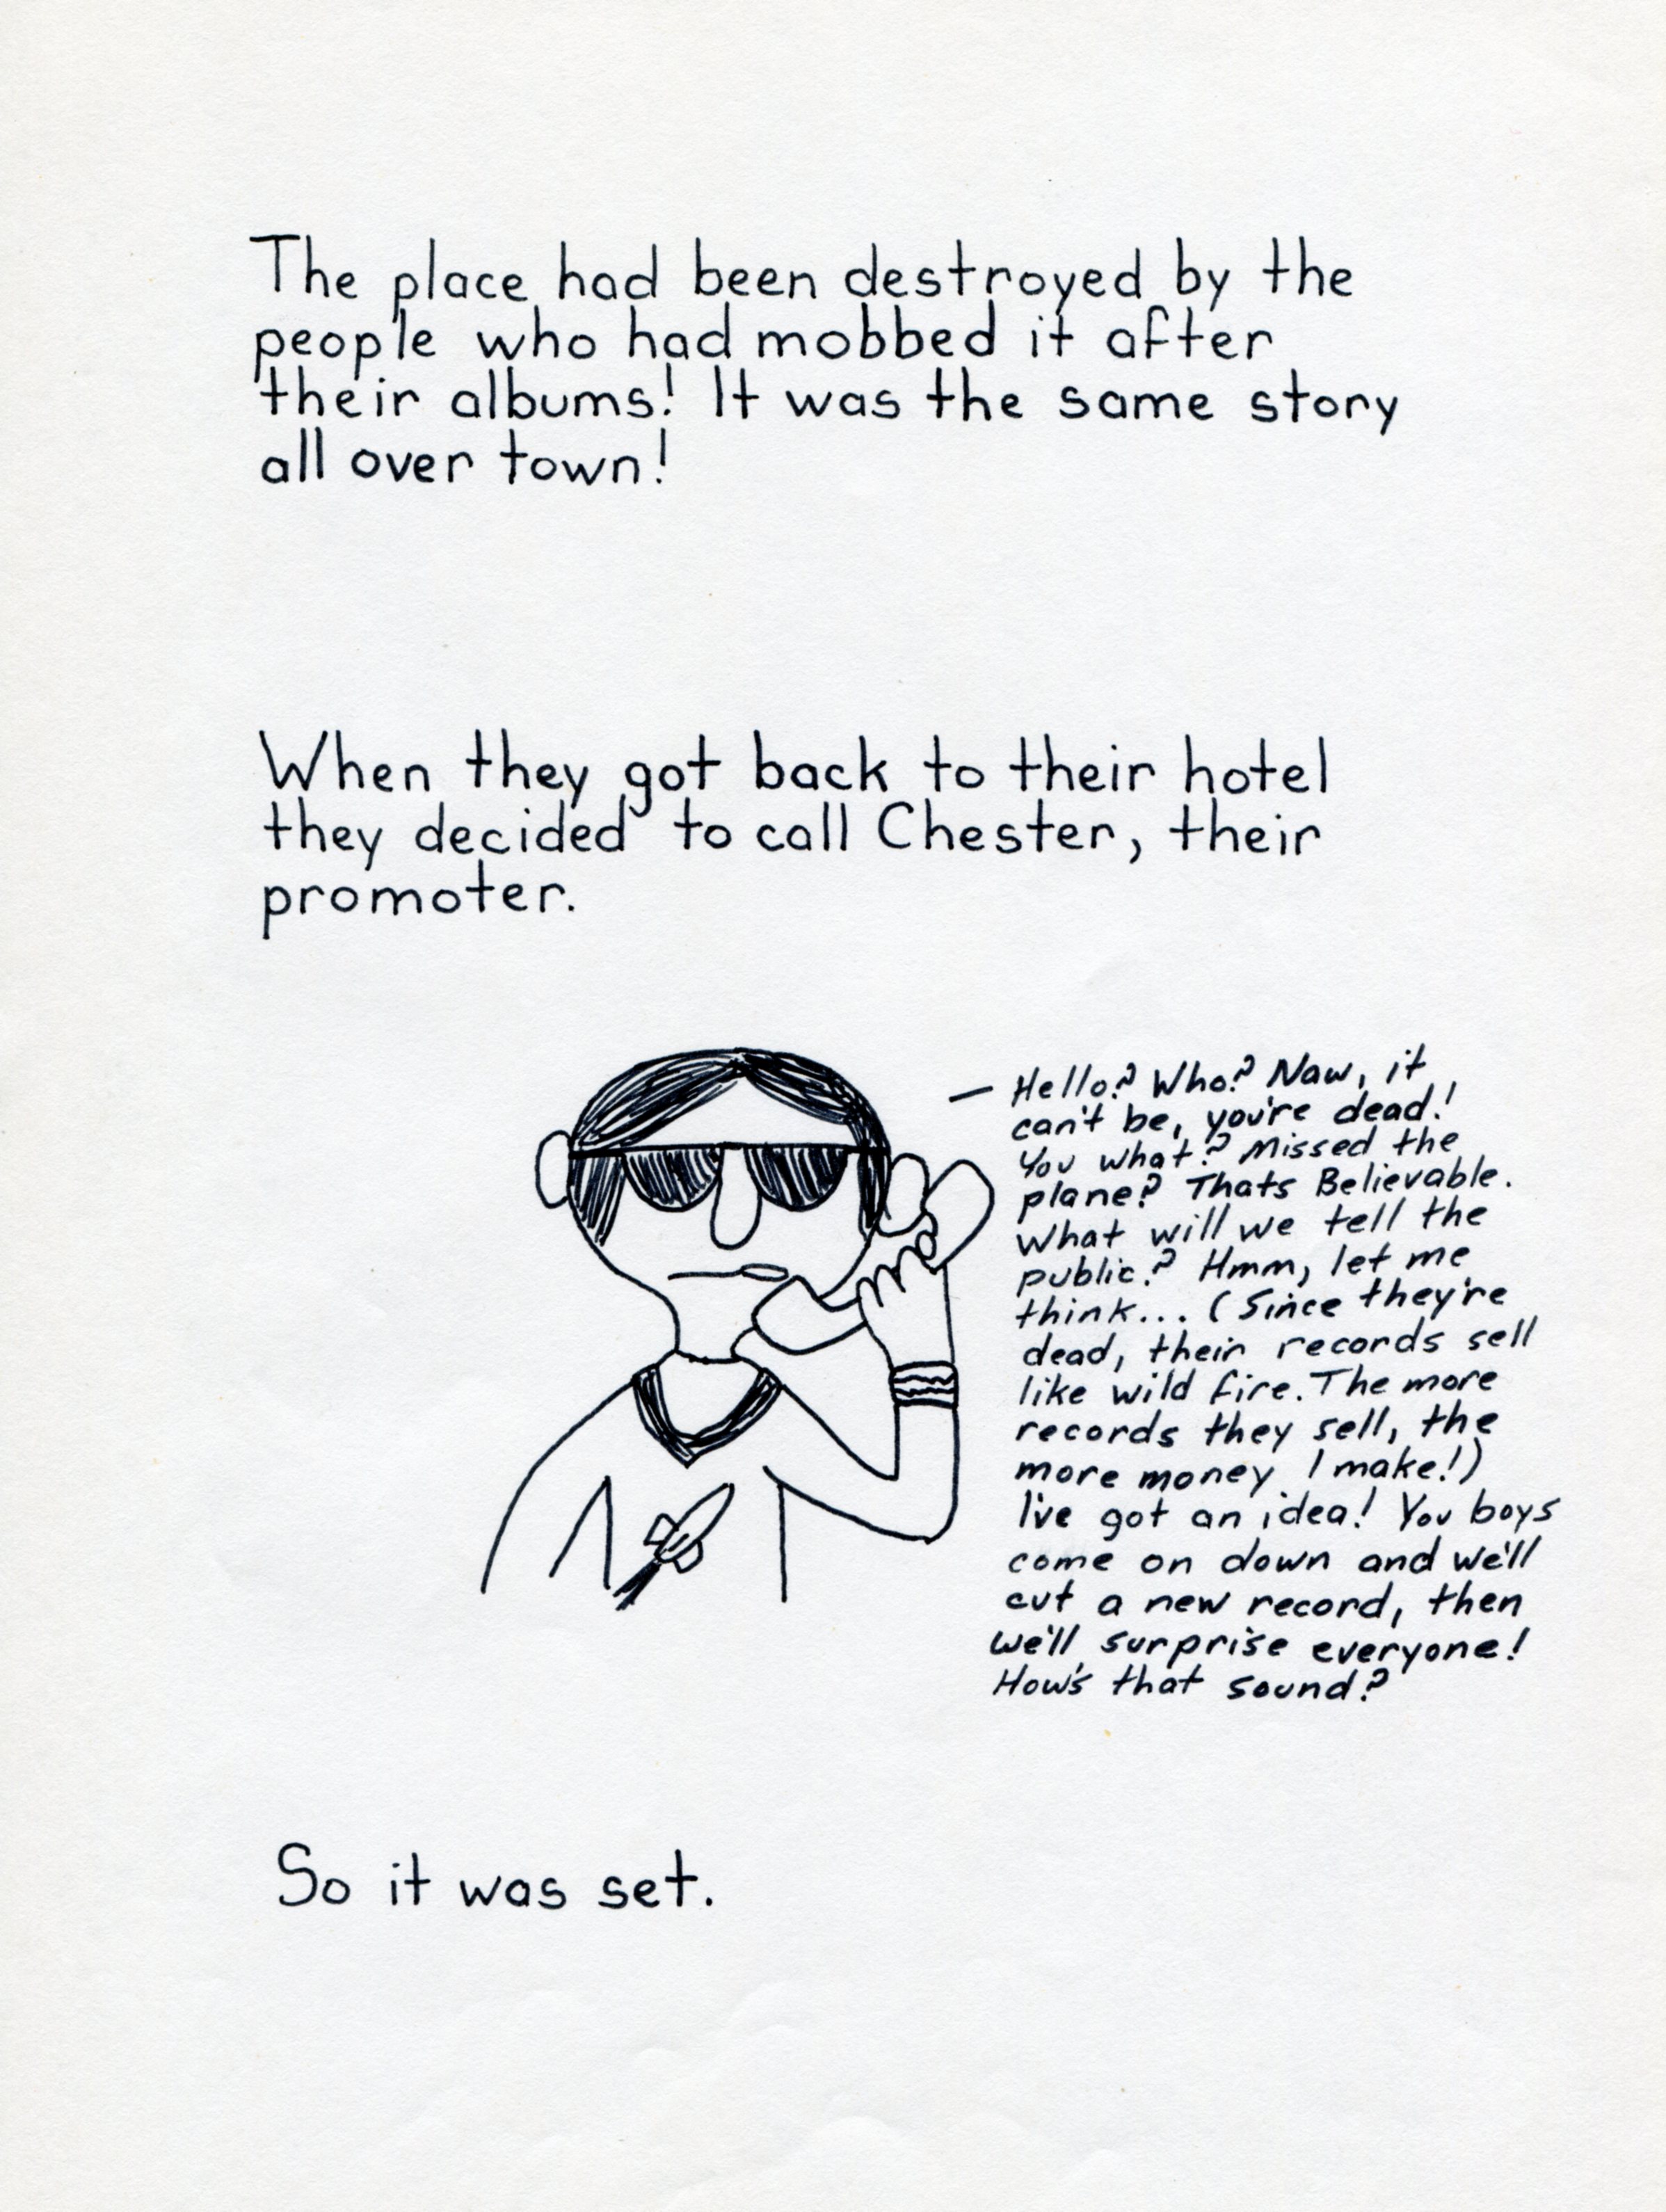 The place had been destroyed by the
people who had mobbed it after
their albums! It was the same story
all over town!
When they got back to their hotel
they decided to call Chester, their
promoter.
— Hello? Who? Naw, it
can't be, you're dead!
You what? Missed the
plane? Thats Believable.
What will we tell the
public? Hmm, let me
think... (Since they're
dead, their records sell
like wild fire. The more
records they sell, the
more money I make!)
I've got an idea! You boys
come on down and we'll
cut a new record, then
we'll surprise everyone!
How's that sound?
So it was set.